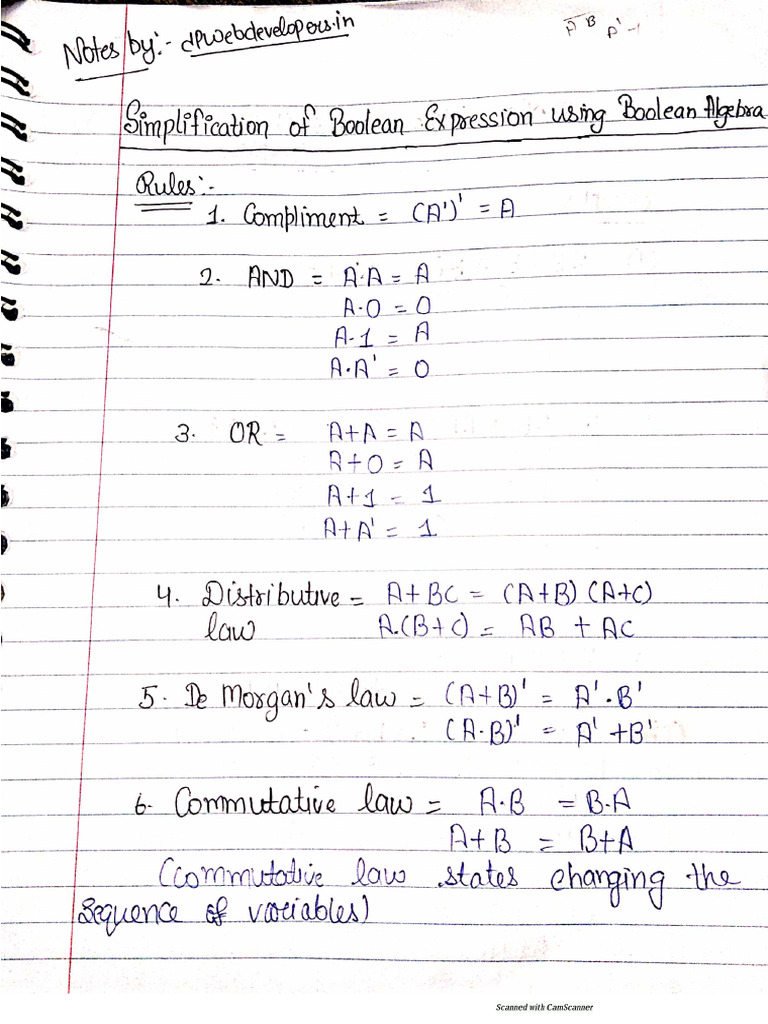 Notes by:- dpwebdevelopers.in
A B A'
Simplification of Boolean Expression using Boolean Algebra
Rules:-
1. Compliment = (A')' = A
2. AND = A·A = A
A·0 = 0
A·1 = A
A·A' = 0
3. OR = A+A = A
A+0 = A
A+1 = 1
A+A' = 1
4. Distributive = A+BC = (A+B) (A+C)
law A.(B+C) = AB + AC
5. De Morgan's law = (A+B)' = A'·B'
(A·B)' = A'+B'
6. Commutative law = A·B = B·A
A+B = B+A
(commutative law states changing the
sequence of variables)
Scanned with CamScanner